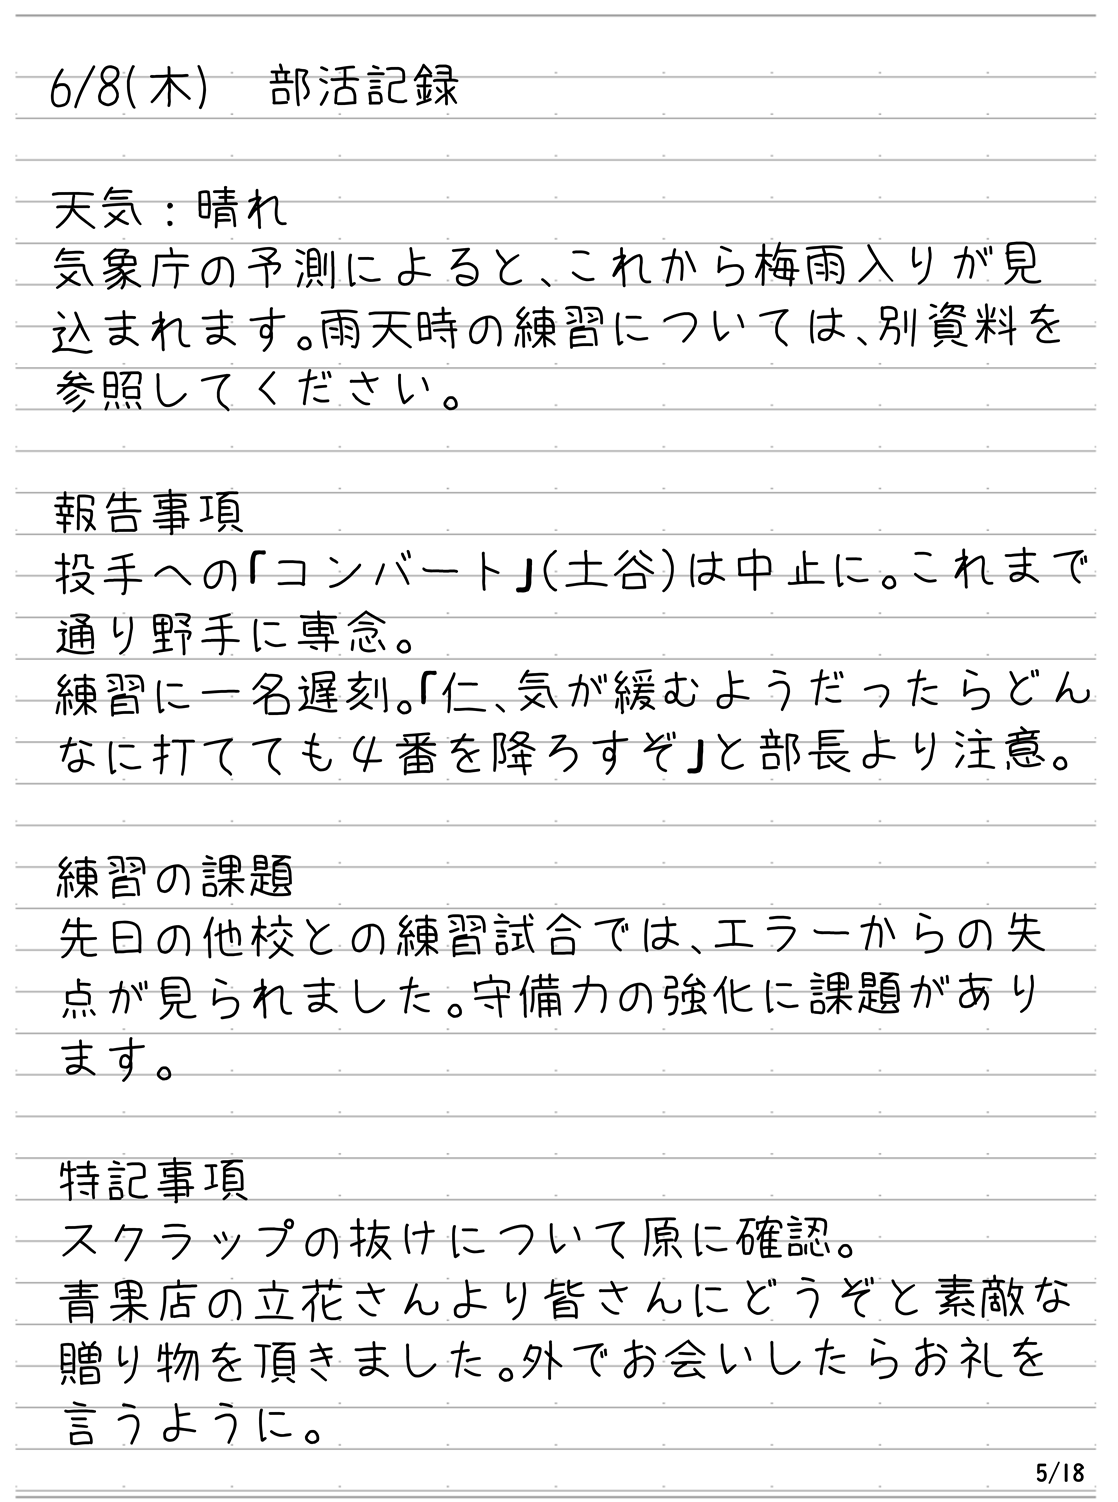 6/8(木)　部活記録
天気：晴れ
気象庁の予測によると、これから梅雨入りが見
込まれます。雨天時の練習については、別資料を
参照してください。
報告事項
投手への「コンバート」(土谷)は中止に。これまで
通り野手に専念。
練習に一名遅刻。「仁、気が緩むようだったらどん
なに打てても4番を降ろすぞ」と部長より注意。
練習の課題
先日の他校との練習試合では、エラーからの失
点が見られました。守備力の強化に課題があり
ます。
特記事項
スクラップの抜けについて原に確認。
青果店の立花さんより皆さんにどうぞと素敵な
贈り物を頂きました。外でお会いしたらお礼を
言うように。
5/18